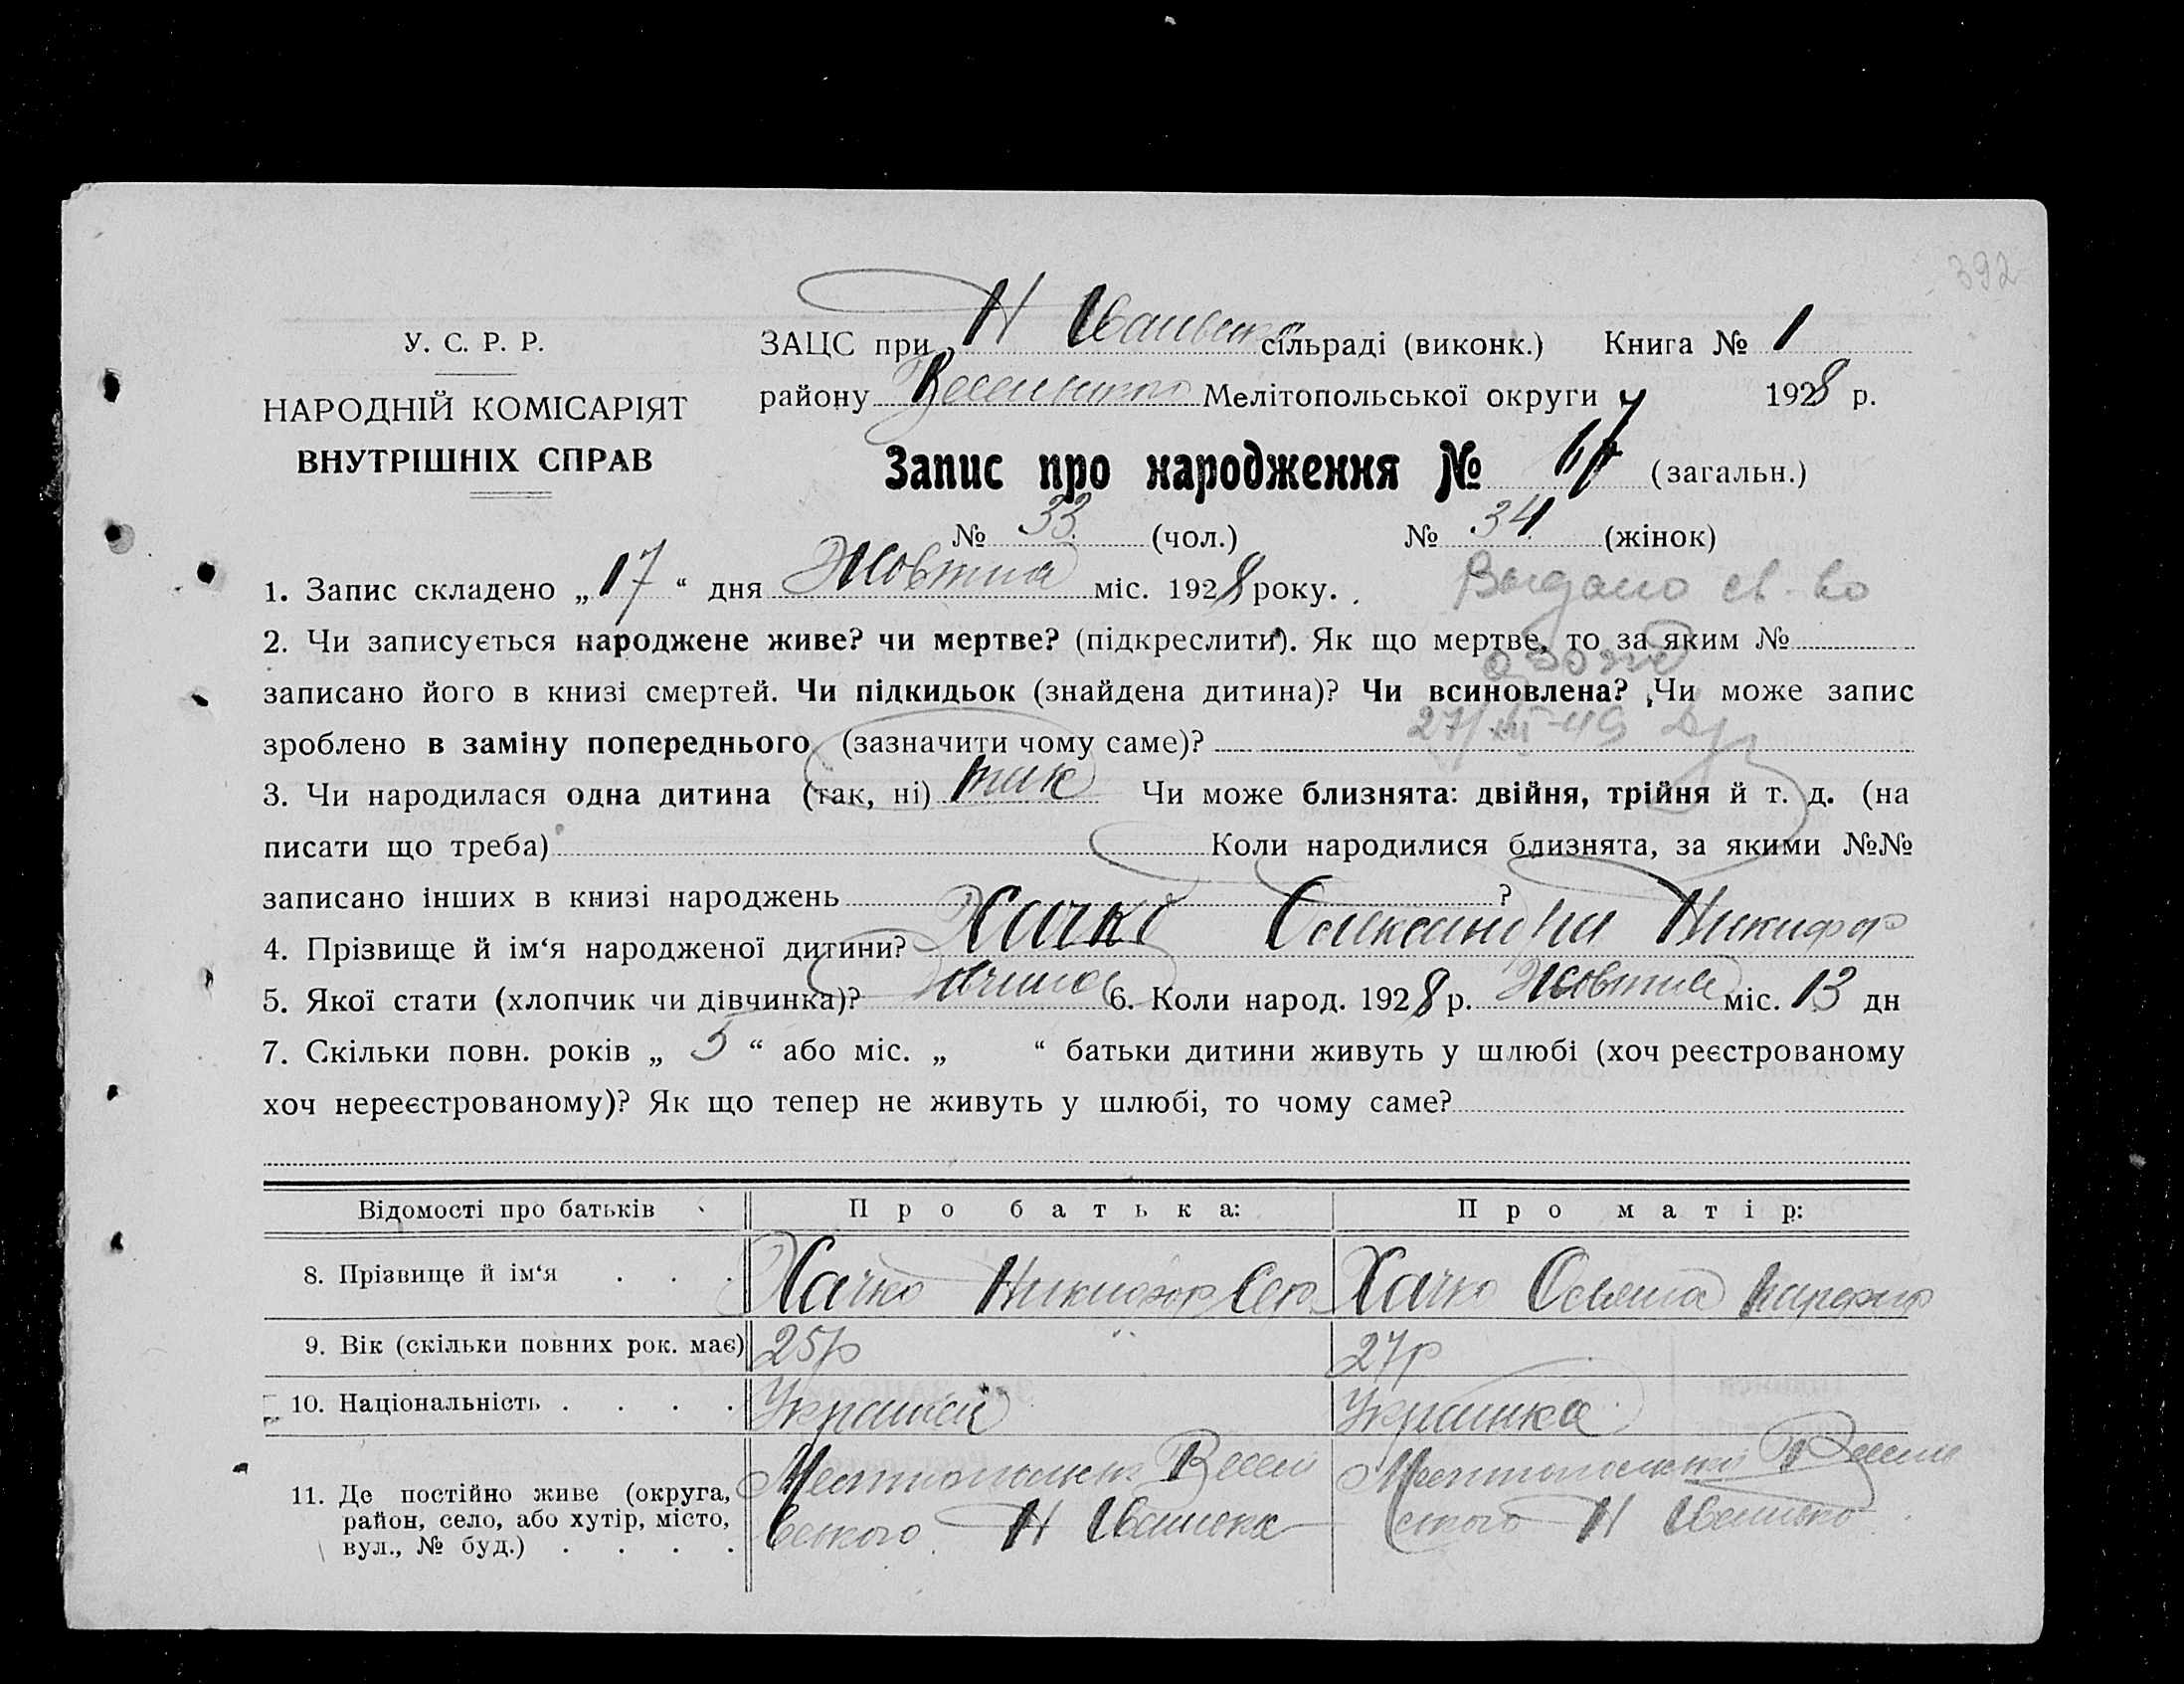 392
У. С. Р. Р.
НАРОДНІЙ КОМІСАРІЯТ
ВНУТРІШНІХ СПРАВ
ЗАЦС при Н Іванівск сільраді (виконк.) Книга № 1
району Мелітопольської округи 1928 р.
Запис про народження № 67 (загальн.)
№ 33 (чол.) № 34 (жінок)
1. Запис складено „17“ дня Жовтня міс. 1928 року.
Видано св-во
2. Чи записується народжене живе? чи мертве? (підкреслити). Як що мертве, то за яким №
о рожд
записано його в книзі смертей. Чи підкидьок (знайдена дитина)? Чи всиновлена? Чи може запис
27/III-49
зроблено в заміну попереднього (зазначити чому саме)?
3. Чи народилася одна дитина (так, ні) так Чи може близнята: двійня, трійня й т. д. (на
писати що треба) Коли народилися близнята, за якими №№
записано інших в книзі народжень ?
4. Прізвище й ім‘я народженої дитини? Хачко Олександра Никифор
5. Якої стати (хлопчик чи дівчинка)? 6. Коли народ. 1928 р. Жовтня міс. 13 дн
7. Скільки повн. років „ 5 “ або міс. „ “ батьки дитини живуть у шлюбі (хоч реєстрованому
хоч нереєстрованому)? Як що тепер не живуть у шлюбі, то чому саме?
Відомості про батьків Про батька: Про матір:
8. Прізвище й ім‘я . . . Хачко Никифор Сер Хачко
9. Вік (скільки повних рок. має) 25р 27р
10. Національність . . . . Українка
11. Де постійно живе (округа,
район, село, або хутір, місто,
вул., № буд.) . . . .
Н Іванівка